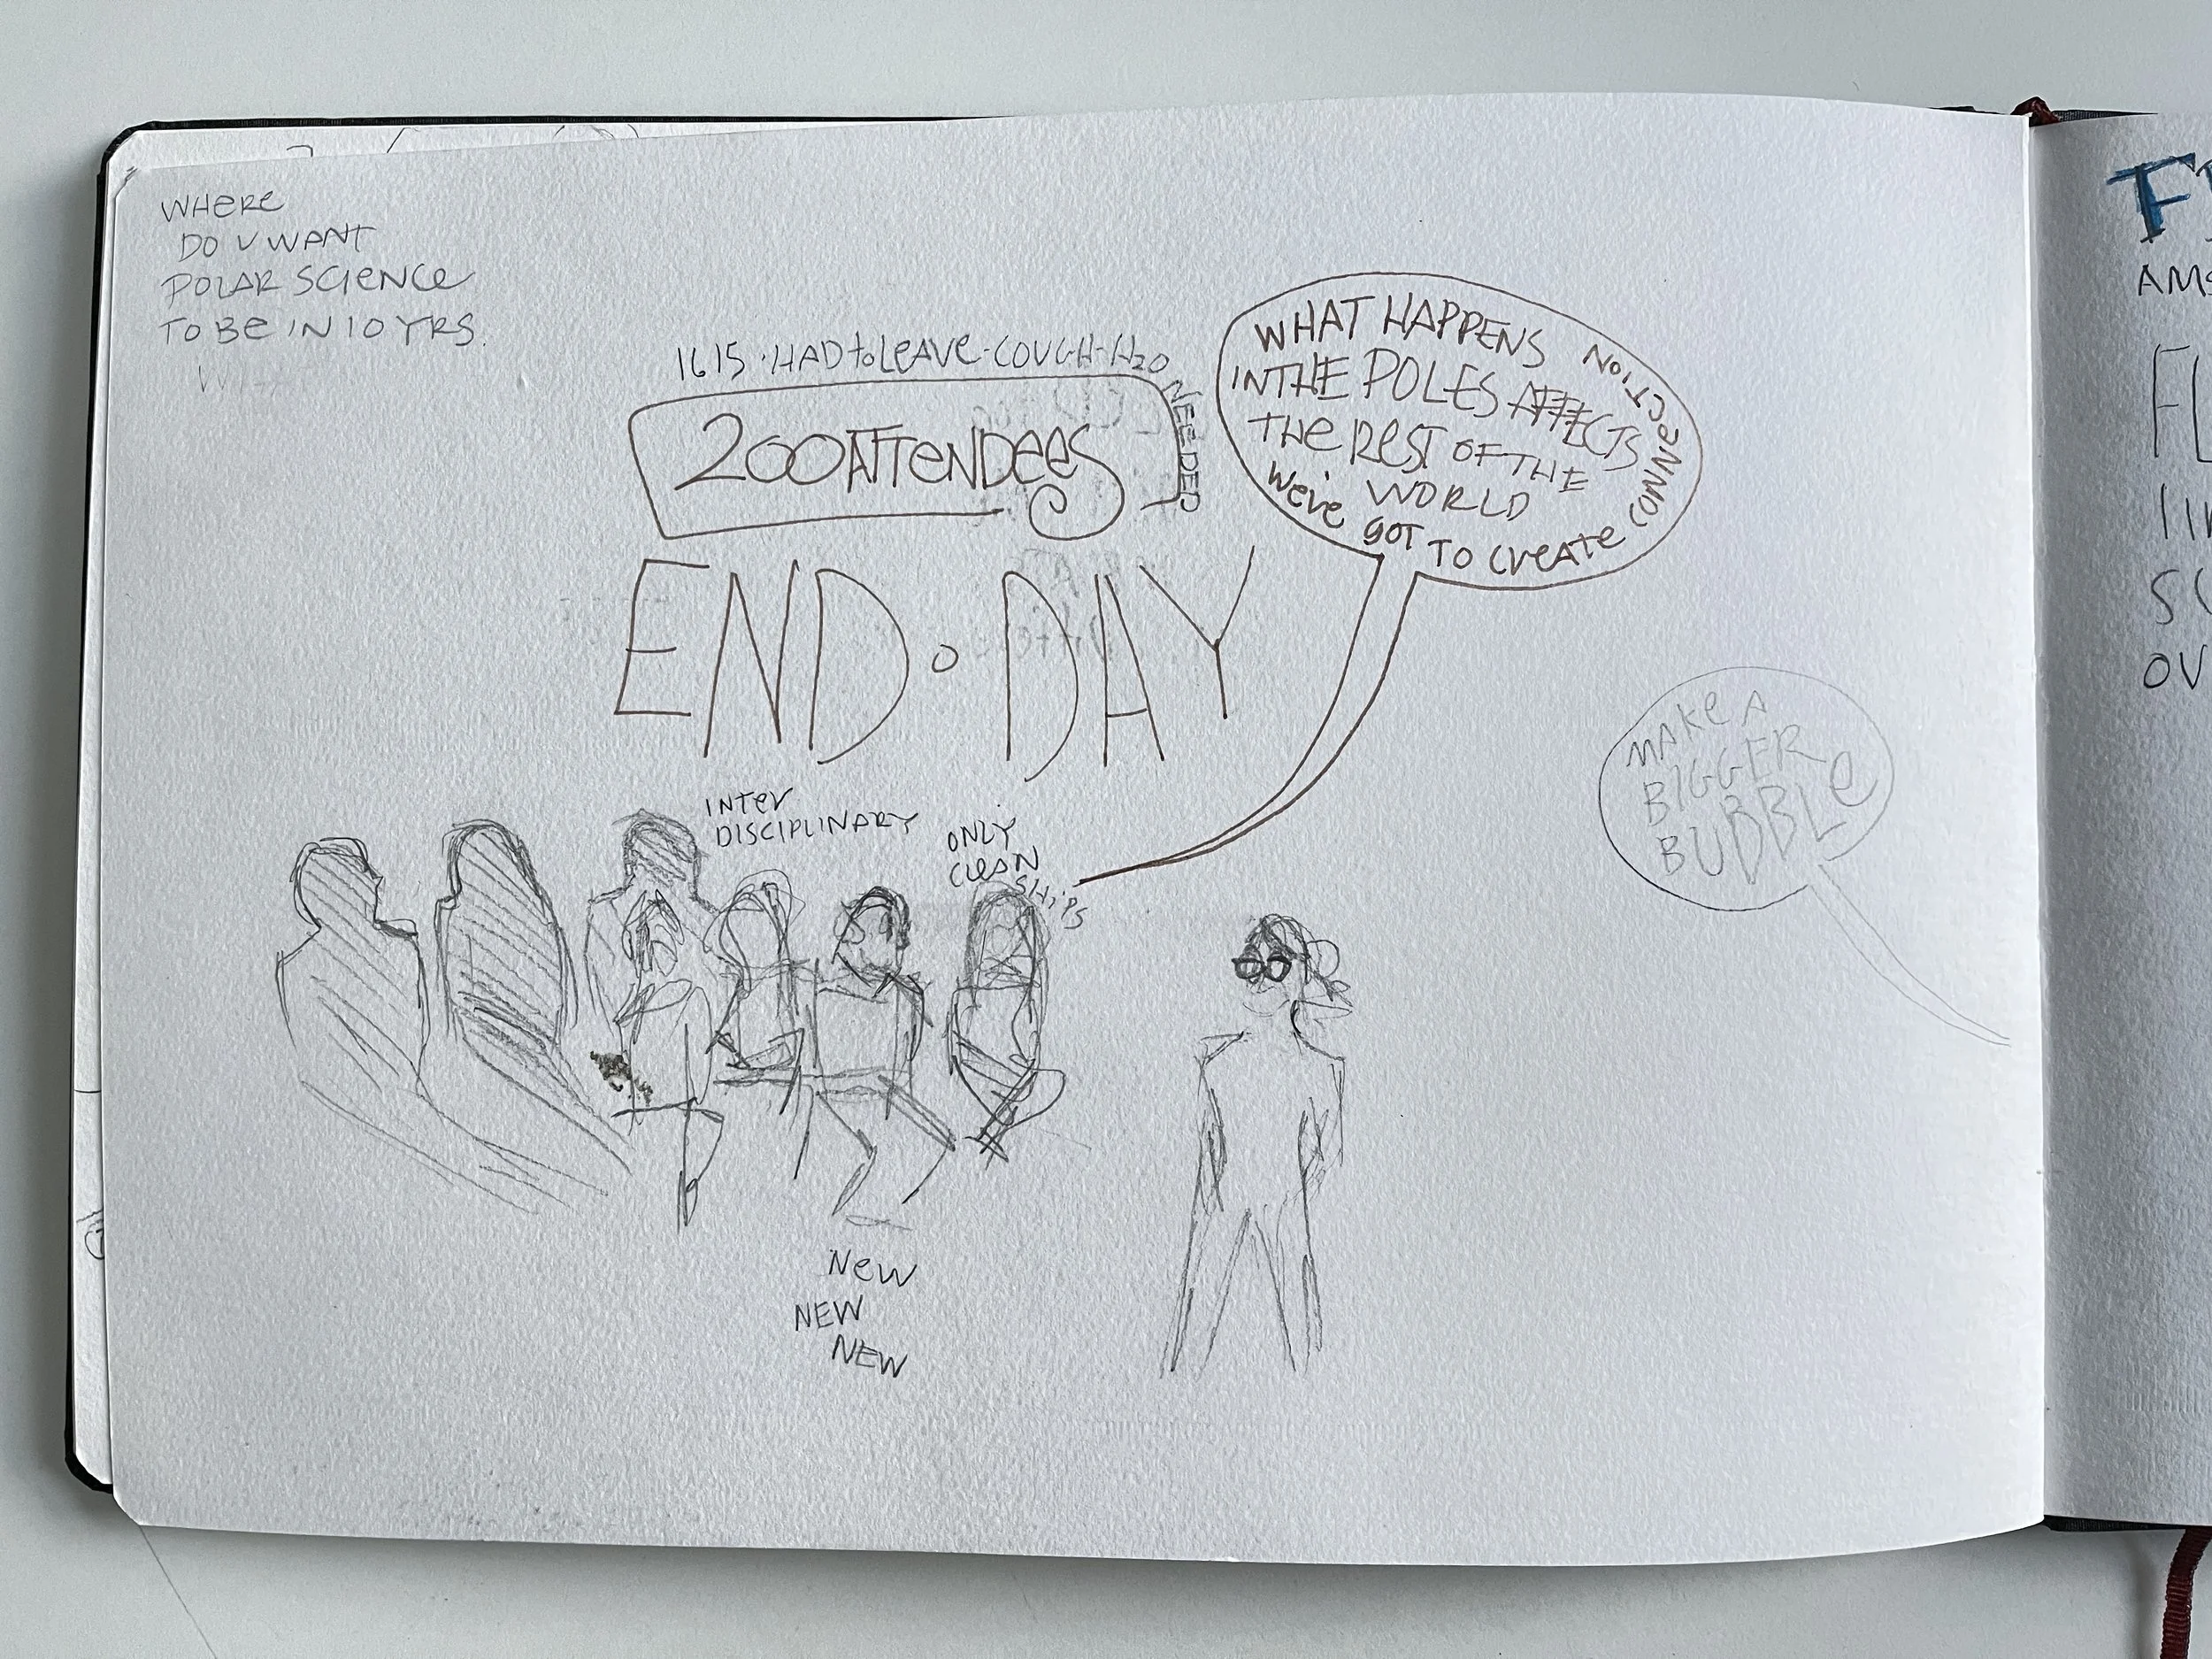 WHERE
DO U WANT
POLAR SCIENCE
TO BE IN 10 YRS.
1615 · HAD to LEAVE - COUGH - H2O
NEEDED
200 ATTENDEES
END • DAY
WHAT HAPPENS
IN THE POLES AFFECTS
THE REST OF THE
WORLD
We've GOT TO CREATE CONNECTION
MAKE A
BIGGER
BUBBLE
INTER
DISCIPLINARY
ONLY
CLEAN
SHIPS
NEW
NEW
NEW
AMS
OV